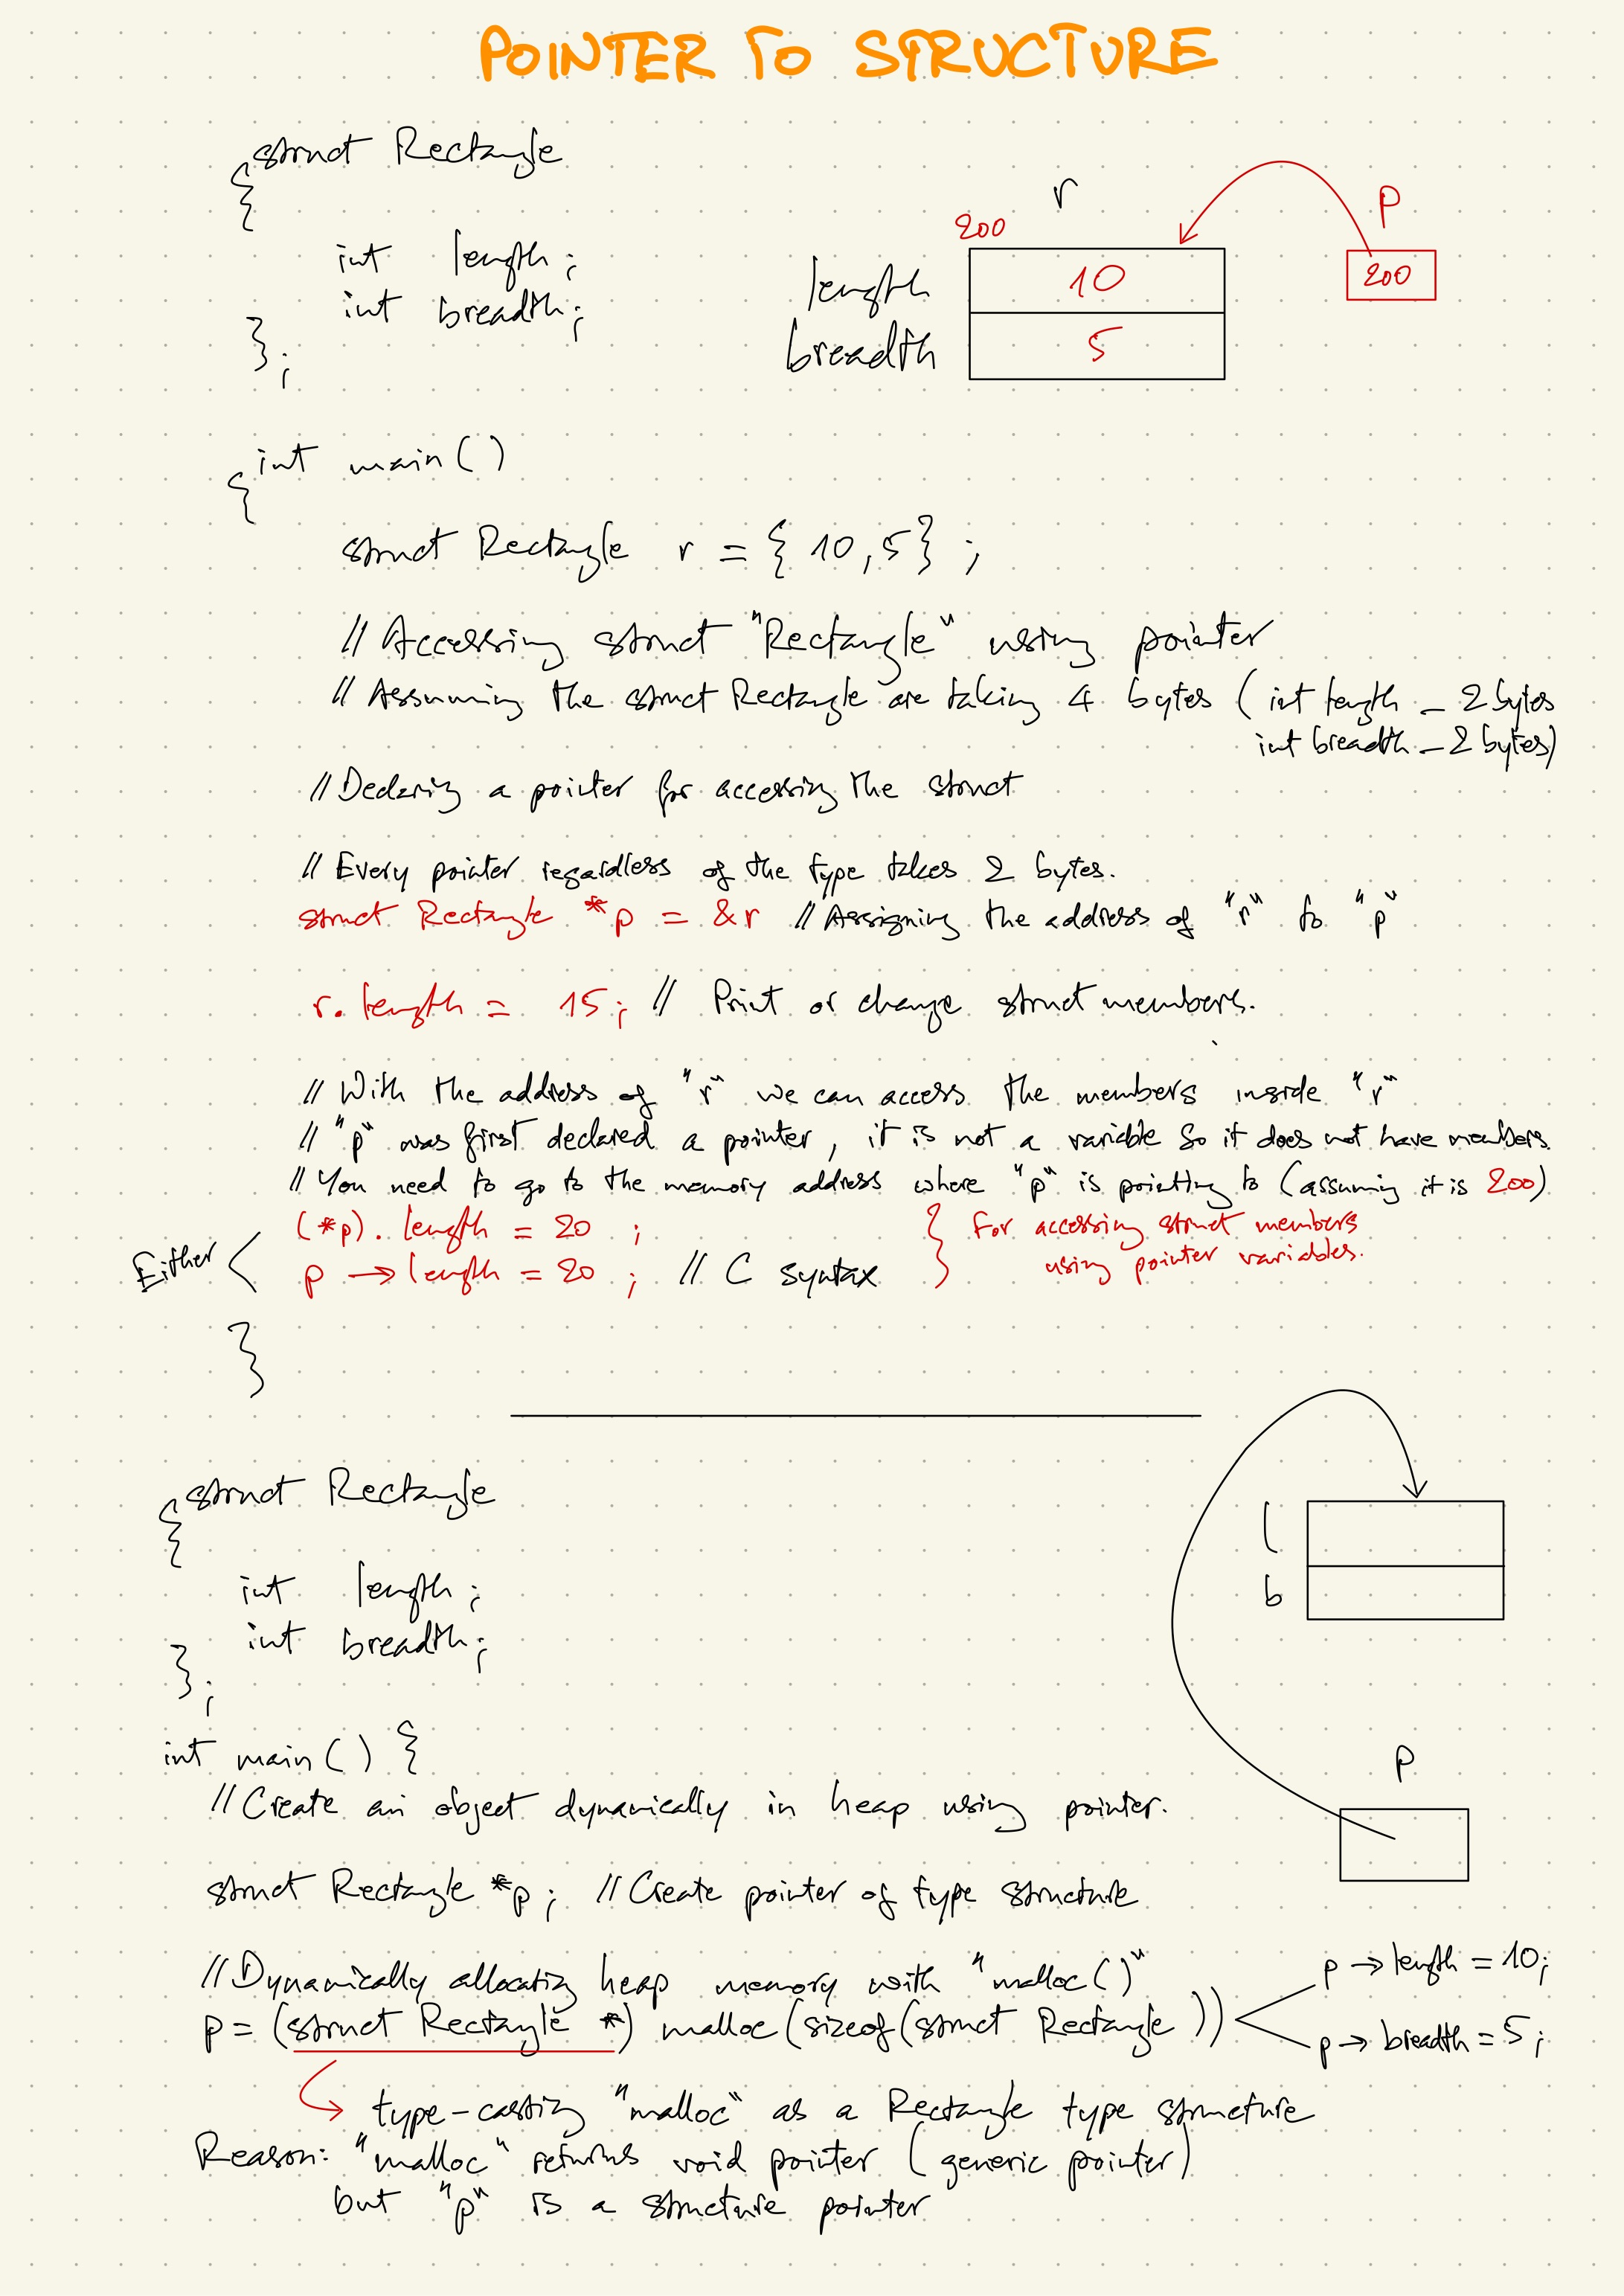 POINTER TO STRUCTURE
struct Rectangle
{
int length;
int breadth;
};
r
P
200
200
length 10
breadth 5
int main()
{
struct Rectangle r = { 10,5} ;
// Accessing struct "Rectangle" using pointer
// Assuming the struct Rectangle are taking 4 bytes ( int length - 2 bytes
int breadth - 2 bytes)
// Declaring a pointer for accessing the struct
// Every pointer regardless of the type takes 2 bytes.
struct Rectangle *p = &r // Assigning the address of "r" to "p"
r.length = 15; // Print or change struct members.
// With the address of "r" we can access the members inside "r"
// "p" was first declared a pointer, it is not a variable so it does not have members
// You need to go to the memory address where "p" is pointing to (assuming it is 200)
Either
(*p).length = 20 ;
p → length = 20 ; // C syntax
} For accessing struct members
using pointer variables.
}
struct Rectangle
{
int length;
int breadth;
};
l
b
P
int main() {
// Create an object dynamically in heap using pointer.
struct Rectangle *p; // Create pointer of type structure
// Dynamically allocating heap memory with "malloc()"
p = (struct Rectangle *) malloc(sizeof(struct Rectangle ))
p → length = 10;
p → breadth = 5;
type-casting "malloc" as a Rectangle type structure
Reason: "malloc" returns void pointer (generic pointer)
but "p" is a structure pointer